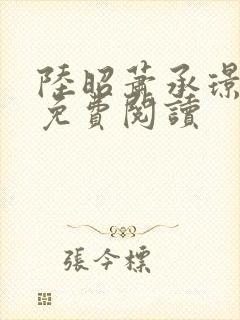 陸昭蕭承璟
免費閱讀
張今標